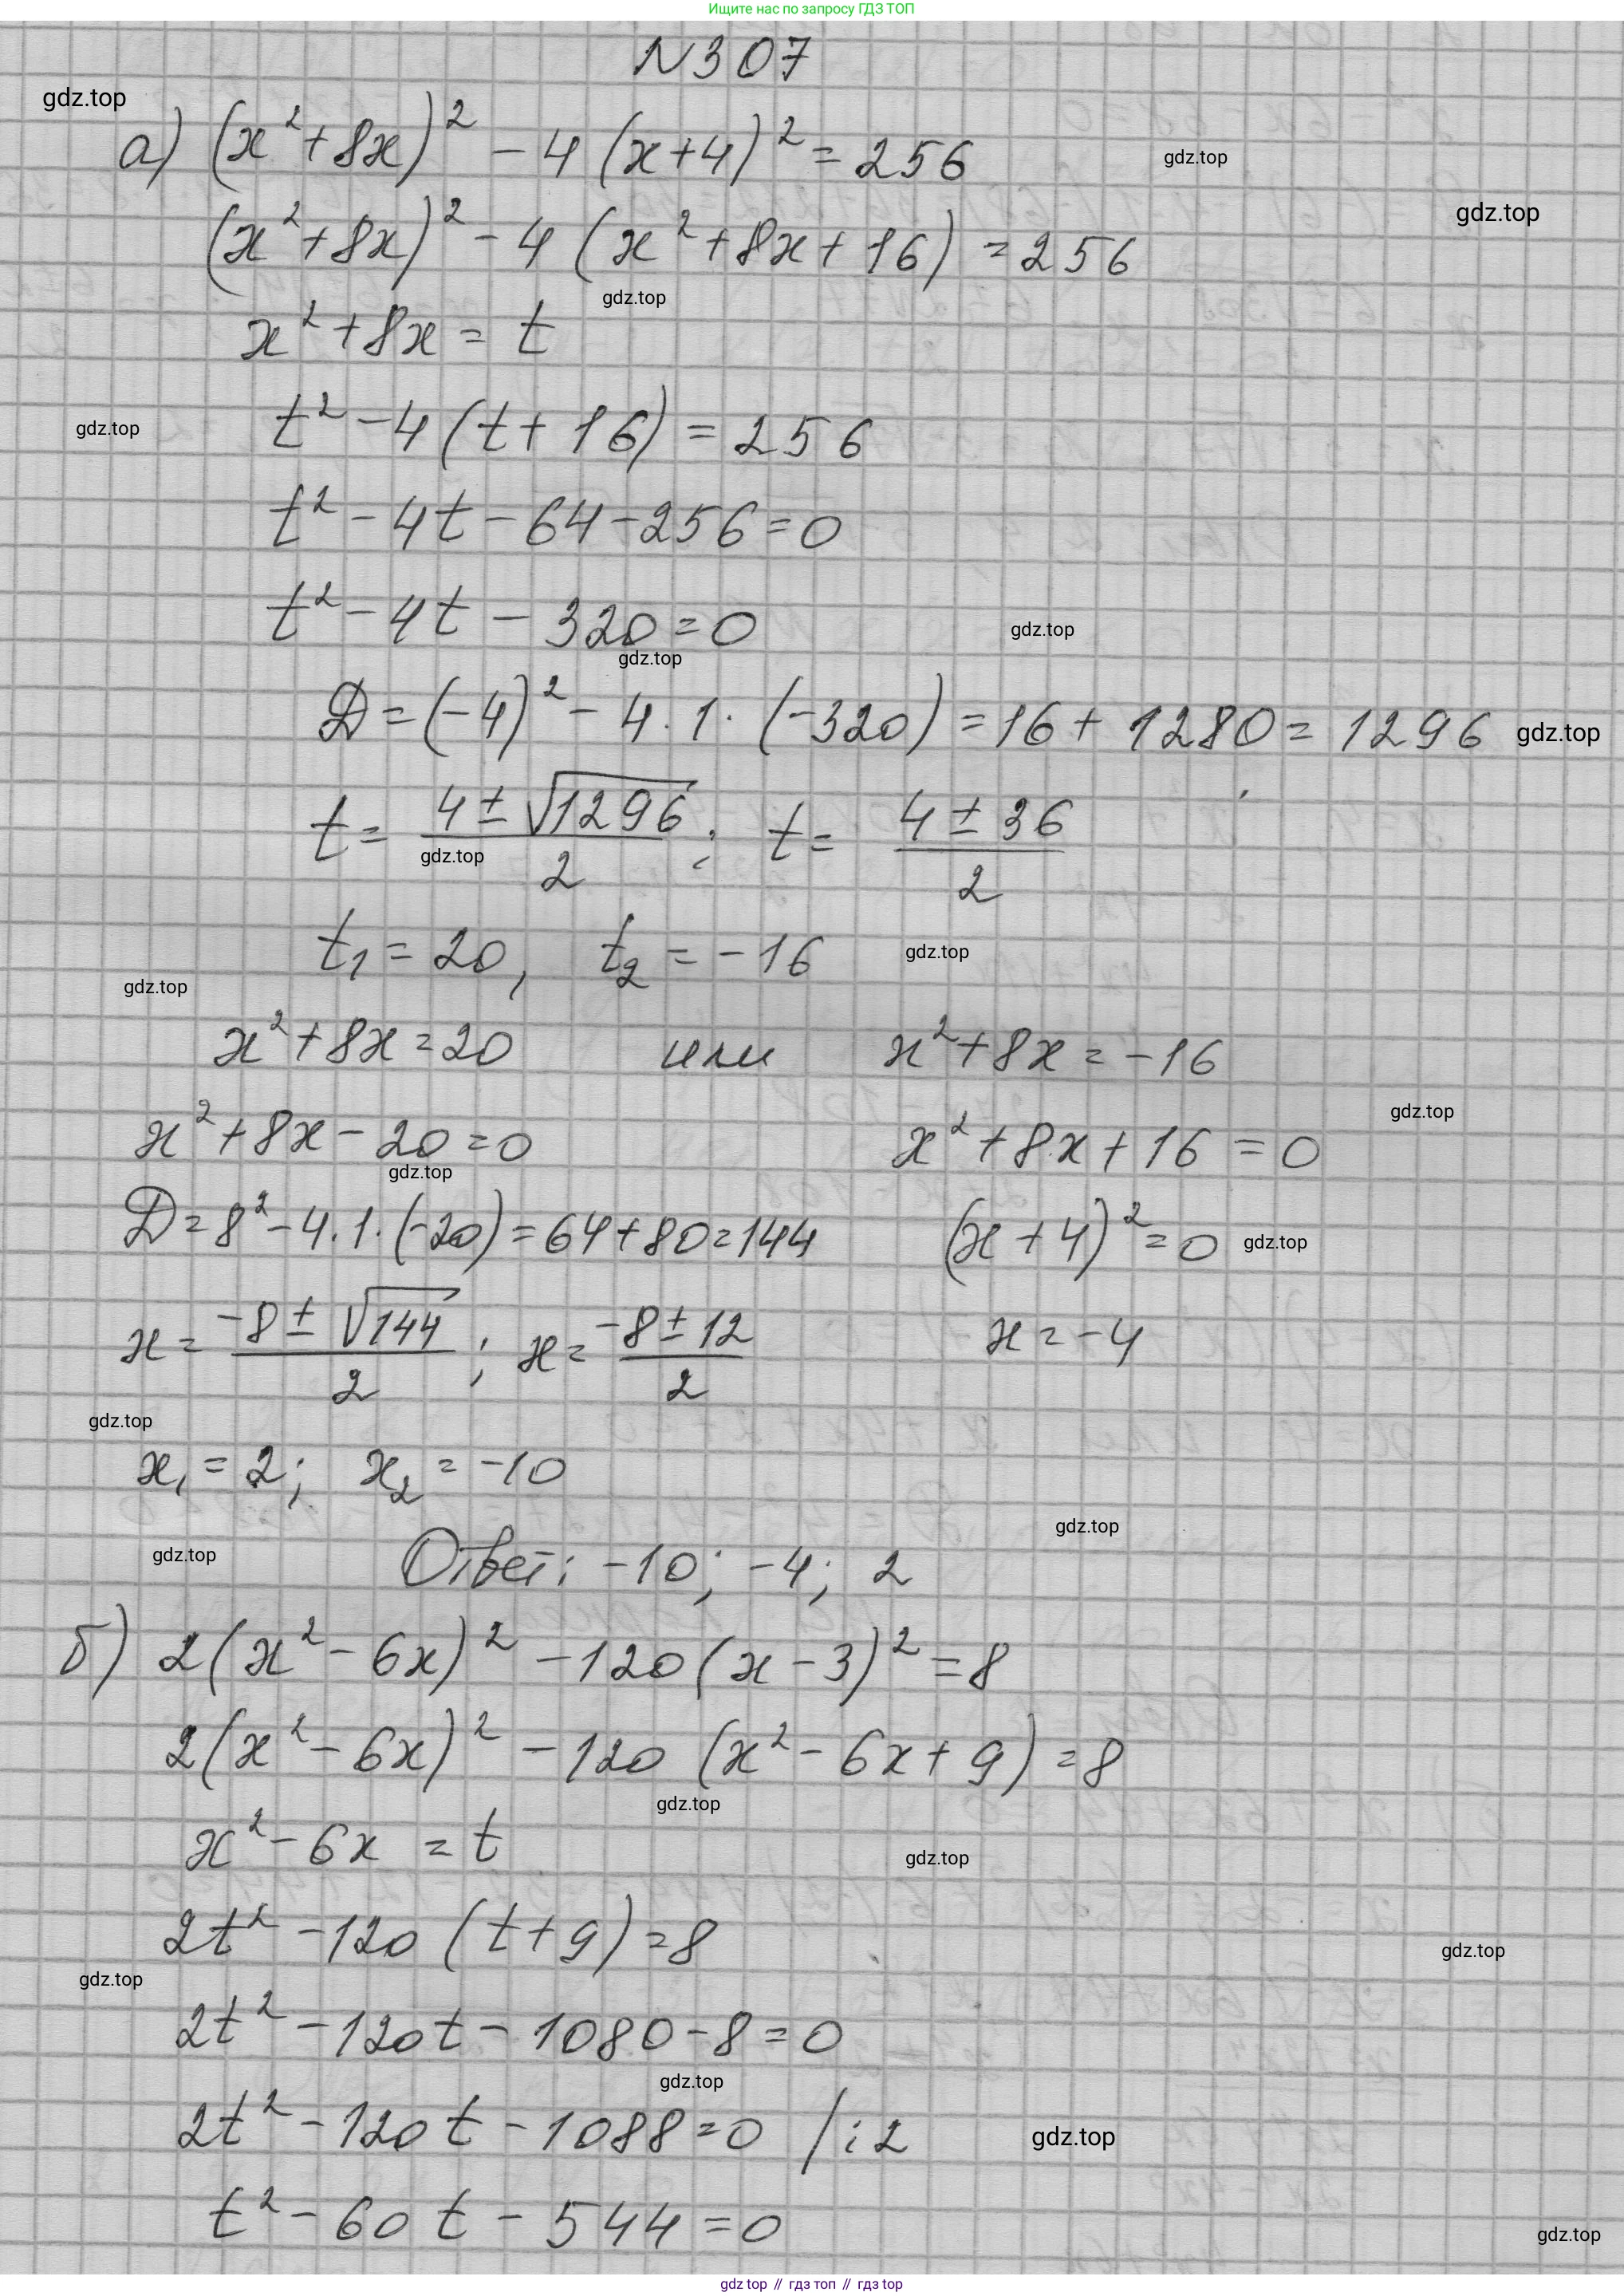 Ищите нас по запросу ГДЗ ТОП
N307
gdz.top
а) (x²+8x)² - 4(x+4)² = 256
gdz.top
gdz.top
(x²+8x)² - 4(x²+8x+16) = 256
gdz.top
x²+8x = t
gdz.top
t² - 4(t+16) = 256
t² - 4t - 64 - 256 = 0
t² - 4t - 320 = 0
gdz.top
gdz.top
D = (-4)² - 4·1·(-320) = 16 + 1280 = 1296
gdz.top
t = (4 ± √1296)/2 ; t = (4 ± 36)/2
gdz.top
t₁ = 20, t₂ = -16
gdz.top
gdz.top
x²+8x = 20 или x²+8x = -16
gdz.top
x²+8x - 20 = 0 x²+8x+16 = 0
gdz.top
D = 8² - 4·1·(-20) = 64+80 = 144 (x+4)² = 0
gdz.top
x = (-8 ± √144)/2 ; x = (-8 ± 12)/2 x = -4
gdz.top
x₁ = 2; x₂ = -10
gdz.top
gdz.top
Ответ: -10; -4; 2
б) 2(x² - 6x)² - 120(x - 3)² = 8
2(x² - 6x)² - 120(x² - 6x + 9) = 8
gdz.top
x² - 6x = t
gdz.top
2t² - 120(t+9) = 8
gdz.top
gdz.top
2t² - 120t - 1080 - 8 = 0
gdz.top
2t² - 120t - 1088 = 0 /:2
gdz.top
t² - 60t - 544 = 0
gdz.top
gdz top // гдз топ // gdz top